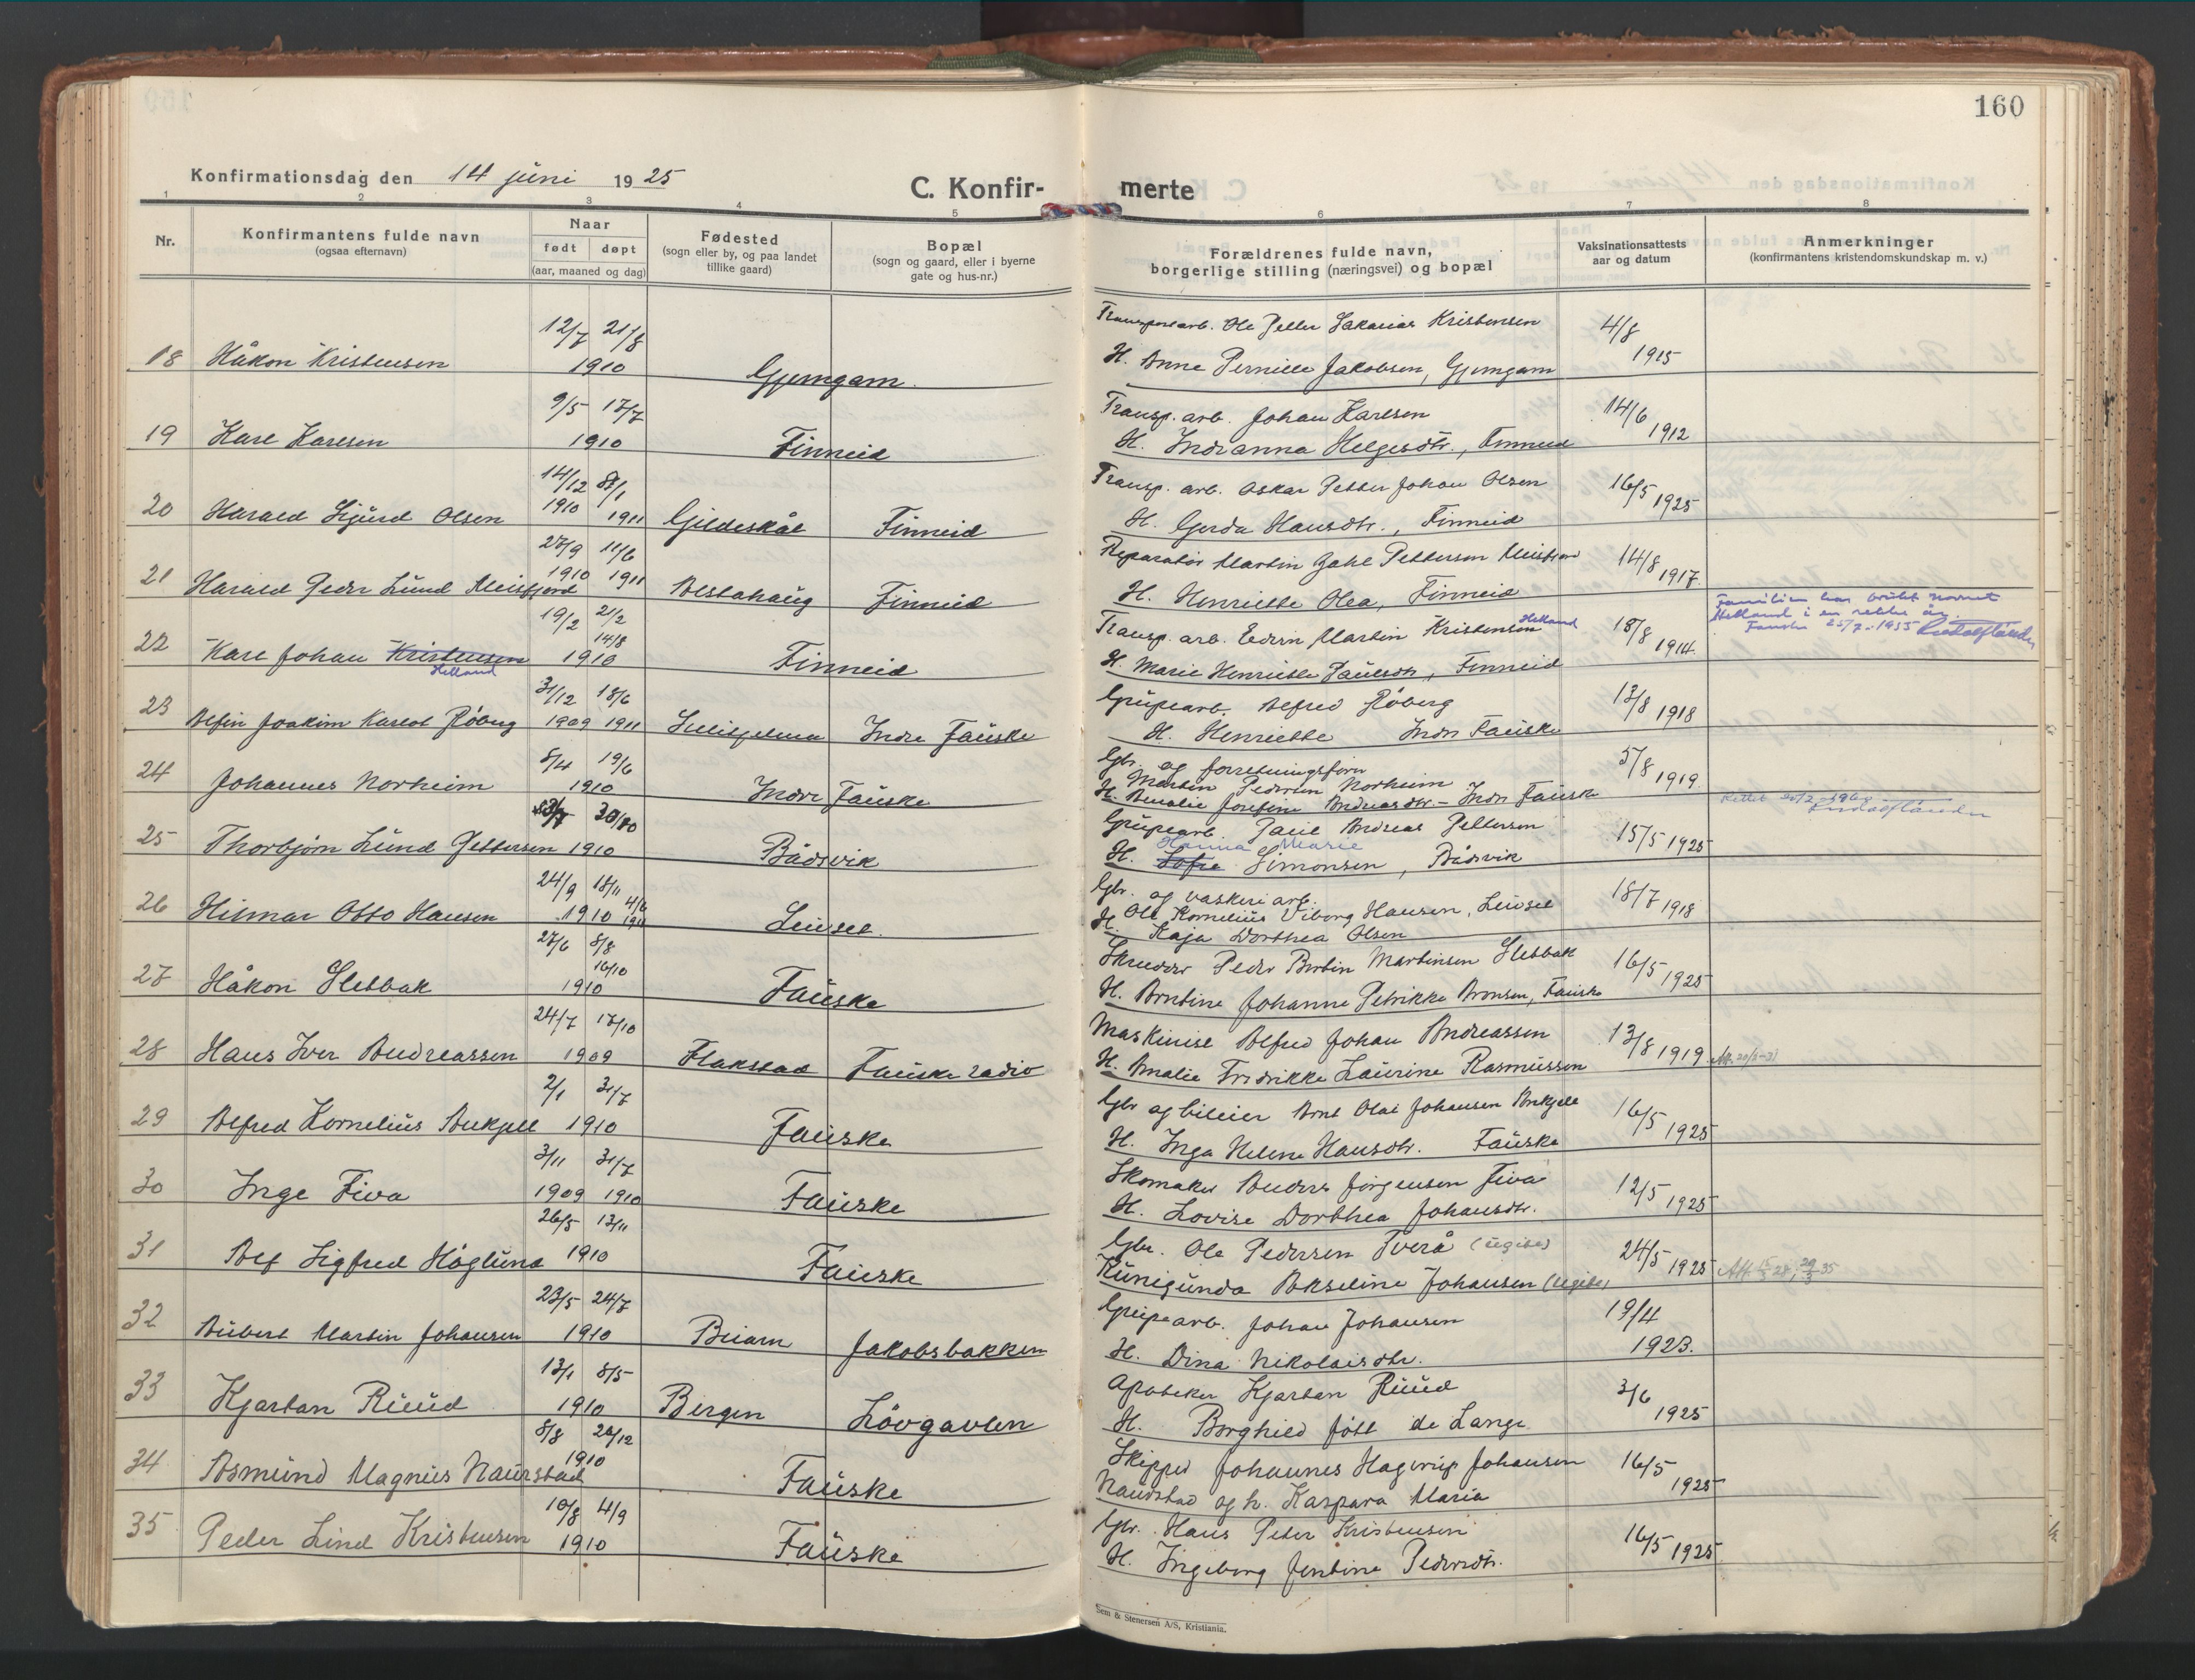 160
Konfirmationsdag den 14 juni 1925
C. Konfir- merte
1 2 3 4 5 6 7 8
Nr.
Konfirmantens fulde navn
(ogsaa efternavn)
Naar
født døpt
(aar, maaned og dag)
Fødested
(sogn eller by, og paa landet
tillike gaard)
Bopæl
(sogn og gaard, eller i byerne
gate og hus-nr.)
Forældrenes fulde navn,
borgerlige stilling (næringsvei) og bopæl
Vaksinationsattests
aar og datum
Anmerkninger
(konfirmantens kristendomskundskap m. v.)
12/7 21/8 Transportarb. Ole Petter Sakarias Kristensen 4/8
18 Håkon Kristensen 1910 Gjemgam H. Anne Pernille Jakobsen, Gjemgam 1915
9/5 17/7 Transp. arb. Johan Karlsen 14/6
19 Kare Karlsen 1910 Finneid H. Indianna Helgesdtr., Finneid 1912
14/12 8/1 Transp. arb. Oskar Petter Johan Olsen 16/5
20 Harald Sigurd Olsen 1910 1911 Gildeskål Finneid H. Gerda Hansdtr., Finneid 1925
27/9 11/6 Reparatør Martin Dahl Pettersen Meisfjord 14/8
21 Harald Peder Lund Meisfjord 1910 1911 Alstahaug Finneid H. Henriette Olea, Finneid 1917
Familien har brukt navnet
Helland i en rekke år.
Fauske 25/7-1955
19/2 2/2 14/8 Transp. arb. Edvin Martin Kristensen Helland 18/8
22 Kare Johan Kristensen Helland 1910 Finneid H. Marie Henriette Paulsdtr, Finneid 1914
31/12 18/6 Grubearb. Alfred Røberg 13/8
23 Alfin Joakim Karlot Røberg 1909 1911 Sulitjelma Indre Fauske H. Henriette Indre Fauske 1918
5/4 19/6 Gbr. og forretningsfører 5/8
24 Johannes Norheim 1910 Indre Fauske Martin Pedersen Norheim 1919
H. Amalie Josefine Andreasdtr. - Indre Fauske
30/10 Grubearb. Paul Andreas Pettersen 15/5
25 Thorbjørn Lund Pettersen 1910 Bådsvik H. Sofie Hanna Marie Simonsen, Bådsvik 1925
Rettet
24/9 18/11 4/6 Gbr. og vaskeriarb. 18/7
26 Hilmar Otto Hansen 1910 1911 Leivset Ole Kornelius Viborg Hansen, Leivset 1918
H. Kaja Dorthea Olsen
27/6 8/8 16/10 Skredder Peder Bertin Martinsen Slettbak 16/5
27 Håkon Slettbak 1910 Fauske H. Arntine Johanne Petrikke Aronsen, Fauske 1925
24/7 17/10 Maskinist Alfred Johan Andreassen 13/8
28 Hans Iver Andreassen 1909 Flakstad Fauske radio H. Amalie Fredrikke Laurine Rasmussen 1919
2/1 31/7 Gbr og bileier Arnt Olai Johansen Ankjell 16/5
29 Alfred Kornelius Ankjell 1910 Fauske H. Inga Helene Hansdtr. Fauske 1925
3/11 31/7 Skomaker Anders Jørgensen Fiva 12/5
30 Inge Fiva 1909 1910 Fauske H. Lovise Dorthea Johansdtr. 1925
26/5 13/11 Gbr. Ole Pedersen Tverå (ugift) 24/5
31 Alf Sigfred Høglund 1910 Fauske Kunigunda Akseline Johansen (ugift) 1925
23/5 24/7 Grubearb. Johan Johansen 19/4
32 Aubert Martin Johansen 1910 Beiarn Jakobsbakken H. Dina Nikolaisdtr. 1923.
13/1 8/5 Apoteker Kjartan Ruud 3/6
33 Kjartan Ruud 1910 Bergen Lövgavlen H. Borghild født de Lange 1925
8/8 26/12 Skipper Johannes Hagerup Johansen 16/5
34 Asmund Magnus Naurstad 1910 Fauske Naurstad og h. Kaspara Maria 1925
10/8 4/9 Gbr. Hans Peter Kristensen 16/5
35 Peder Lind Kristensen 1910 Fauske H. Ingeborg Jentine Pedersdtr. 1925
Sem & Stenersen A/S, Kristiania.